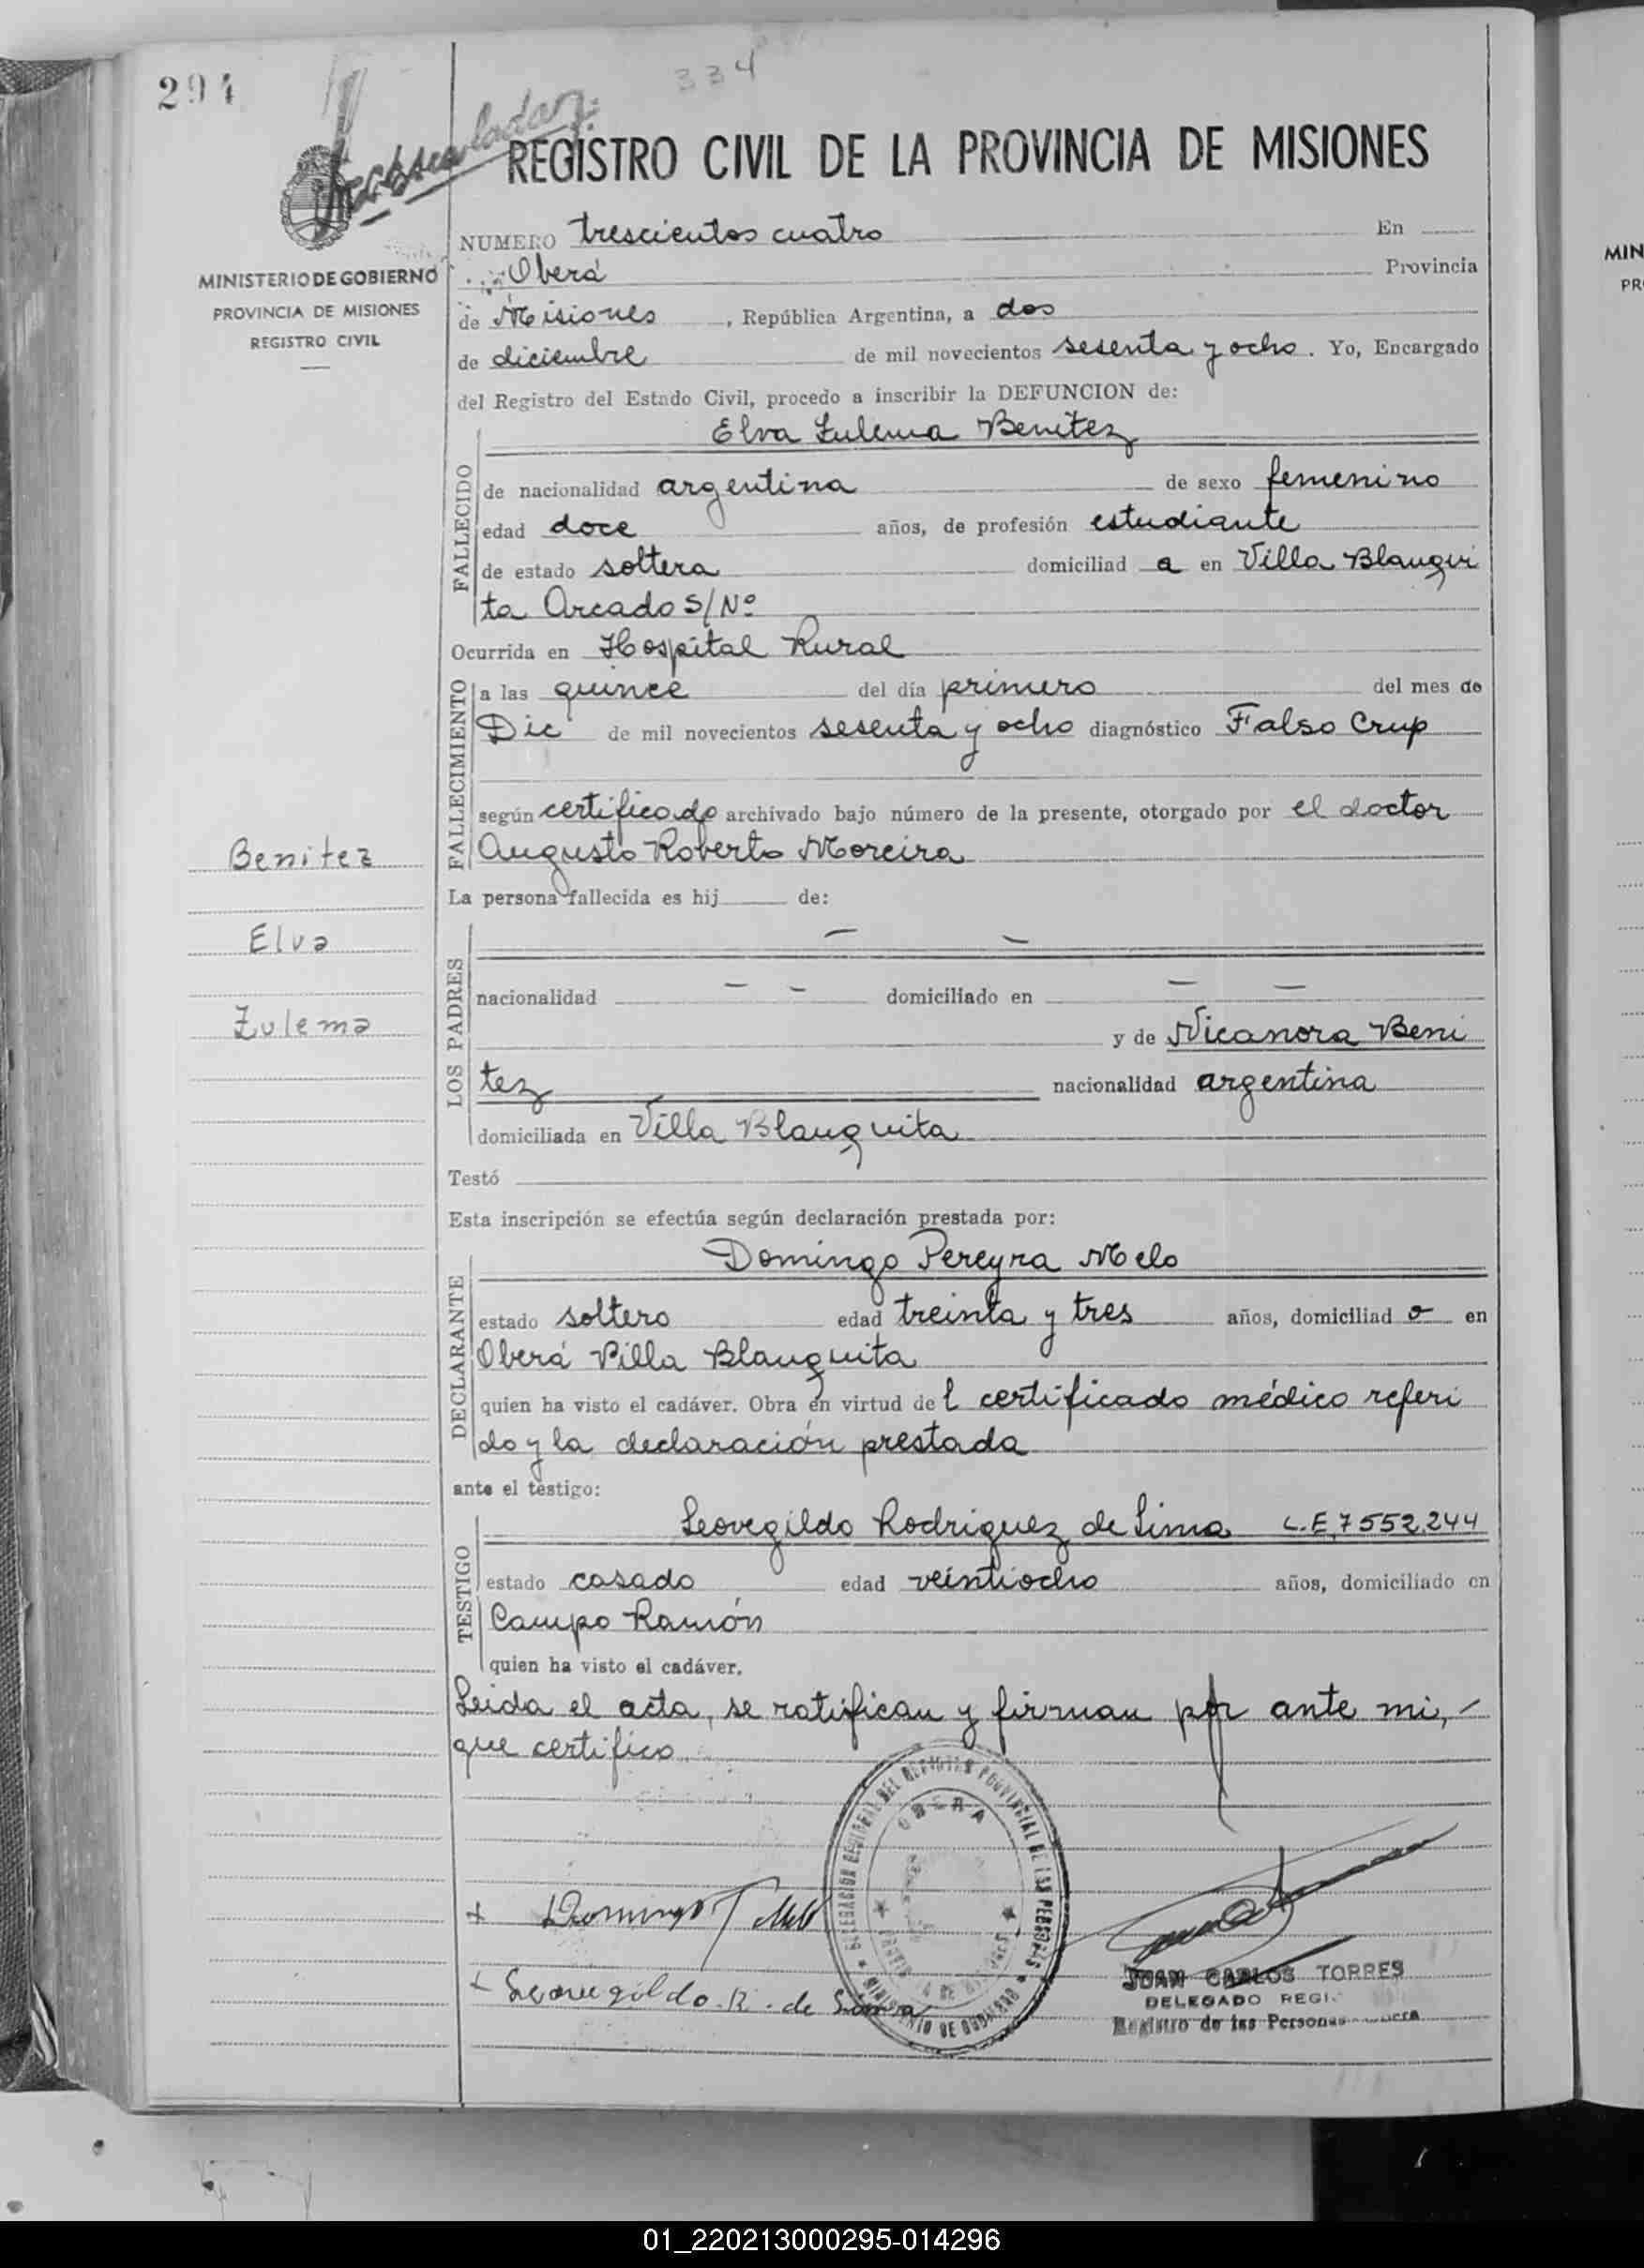 294
334
REGISTRO CIVIL DE LA PROVINCIA DE MISIONES
MINISTERIO DE GOBIERNO
PROVINCIA DE MISIONES
REGISTRO CIVIL
NUMERO trescientos cuatro En
Oberá Provincia
de Misiones, República Argentina, a dos
de diciembre de mil novecientos sesenta y ocho. Yo, Encargado
del Registro del Estado Civil, procedo a inscribir la DEFUNCION de:
Elva Zulema Benitez
FALLECIDO
de nacionalidad argentina de sexo femenino
edad doce años, de profesión estudiante
de estado soltera domiciliad a en Villa Blanqui
ta Arcado S/Nº
Ocurrida en Hospital Rural
FALLECIMIENTO
a las quince del día primero del mes de
Dic de mil novecientos sesenta y ocho diagnóstico Falso Crup
según certificado archivado bajo número de la presente, otorgado por el doctor
Augusto Roberto Moreira
La persona fallecida es hij de:
Benitez
Elva
Zulema
LOS PADRES
— —
nacionalidad — — domiciliado en — —
y de Nicanora Beni
tez nacionalidad argentina
domiciliada en Villa Blanquita
Testó
Esta inscripción se efectúa según declaración prestada por:
Domingo Pereyra Melo
DECLARANTE
estado soltero edad treinta y tres años, domiciliad o en
Oberá Villa Blanquita
quien ha visto el cadáver. Obra en virtud de l certificado médico referi
do y la declaración prestada
ante el testigo:
Leovegildo Rodriguez de Lima L.E. 7552.244
TESTIGO
estado casado edad veintiocho años, domiciliado en
Campo Ramón
quien ha visto el cadáver.
Leida el acta, se ratifican y firman por ante mi, -
que certifico
OBERA
Domingo P Melo
Leovegildo. R. de Lima
JUAN CARLOS TORRES
DELEGADO REGI
Registro de las Personas
01_220213000295-014296